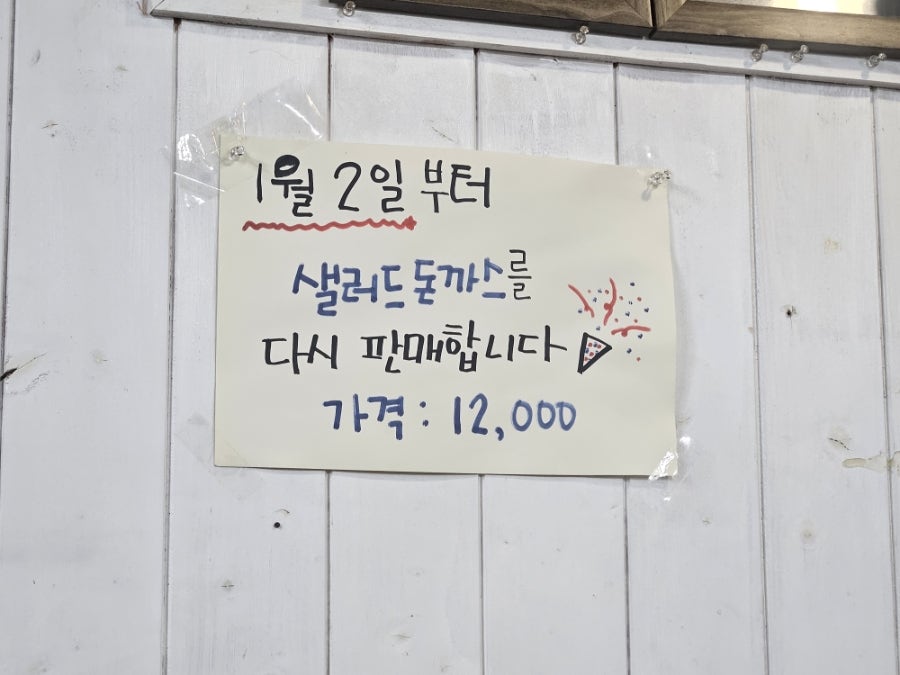 1월 2일 부터
샐러드 돈까스를
다시 판매합니다
가격 : 12,000